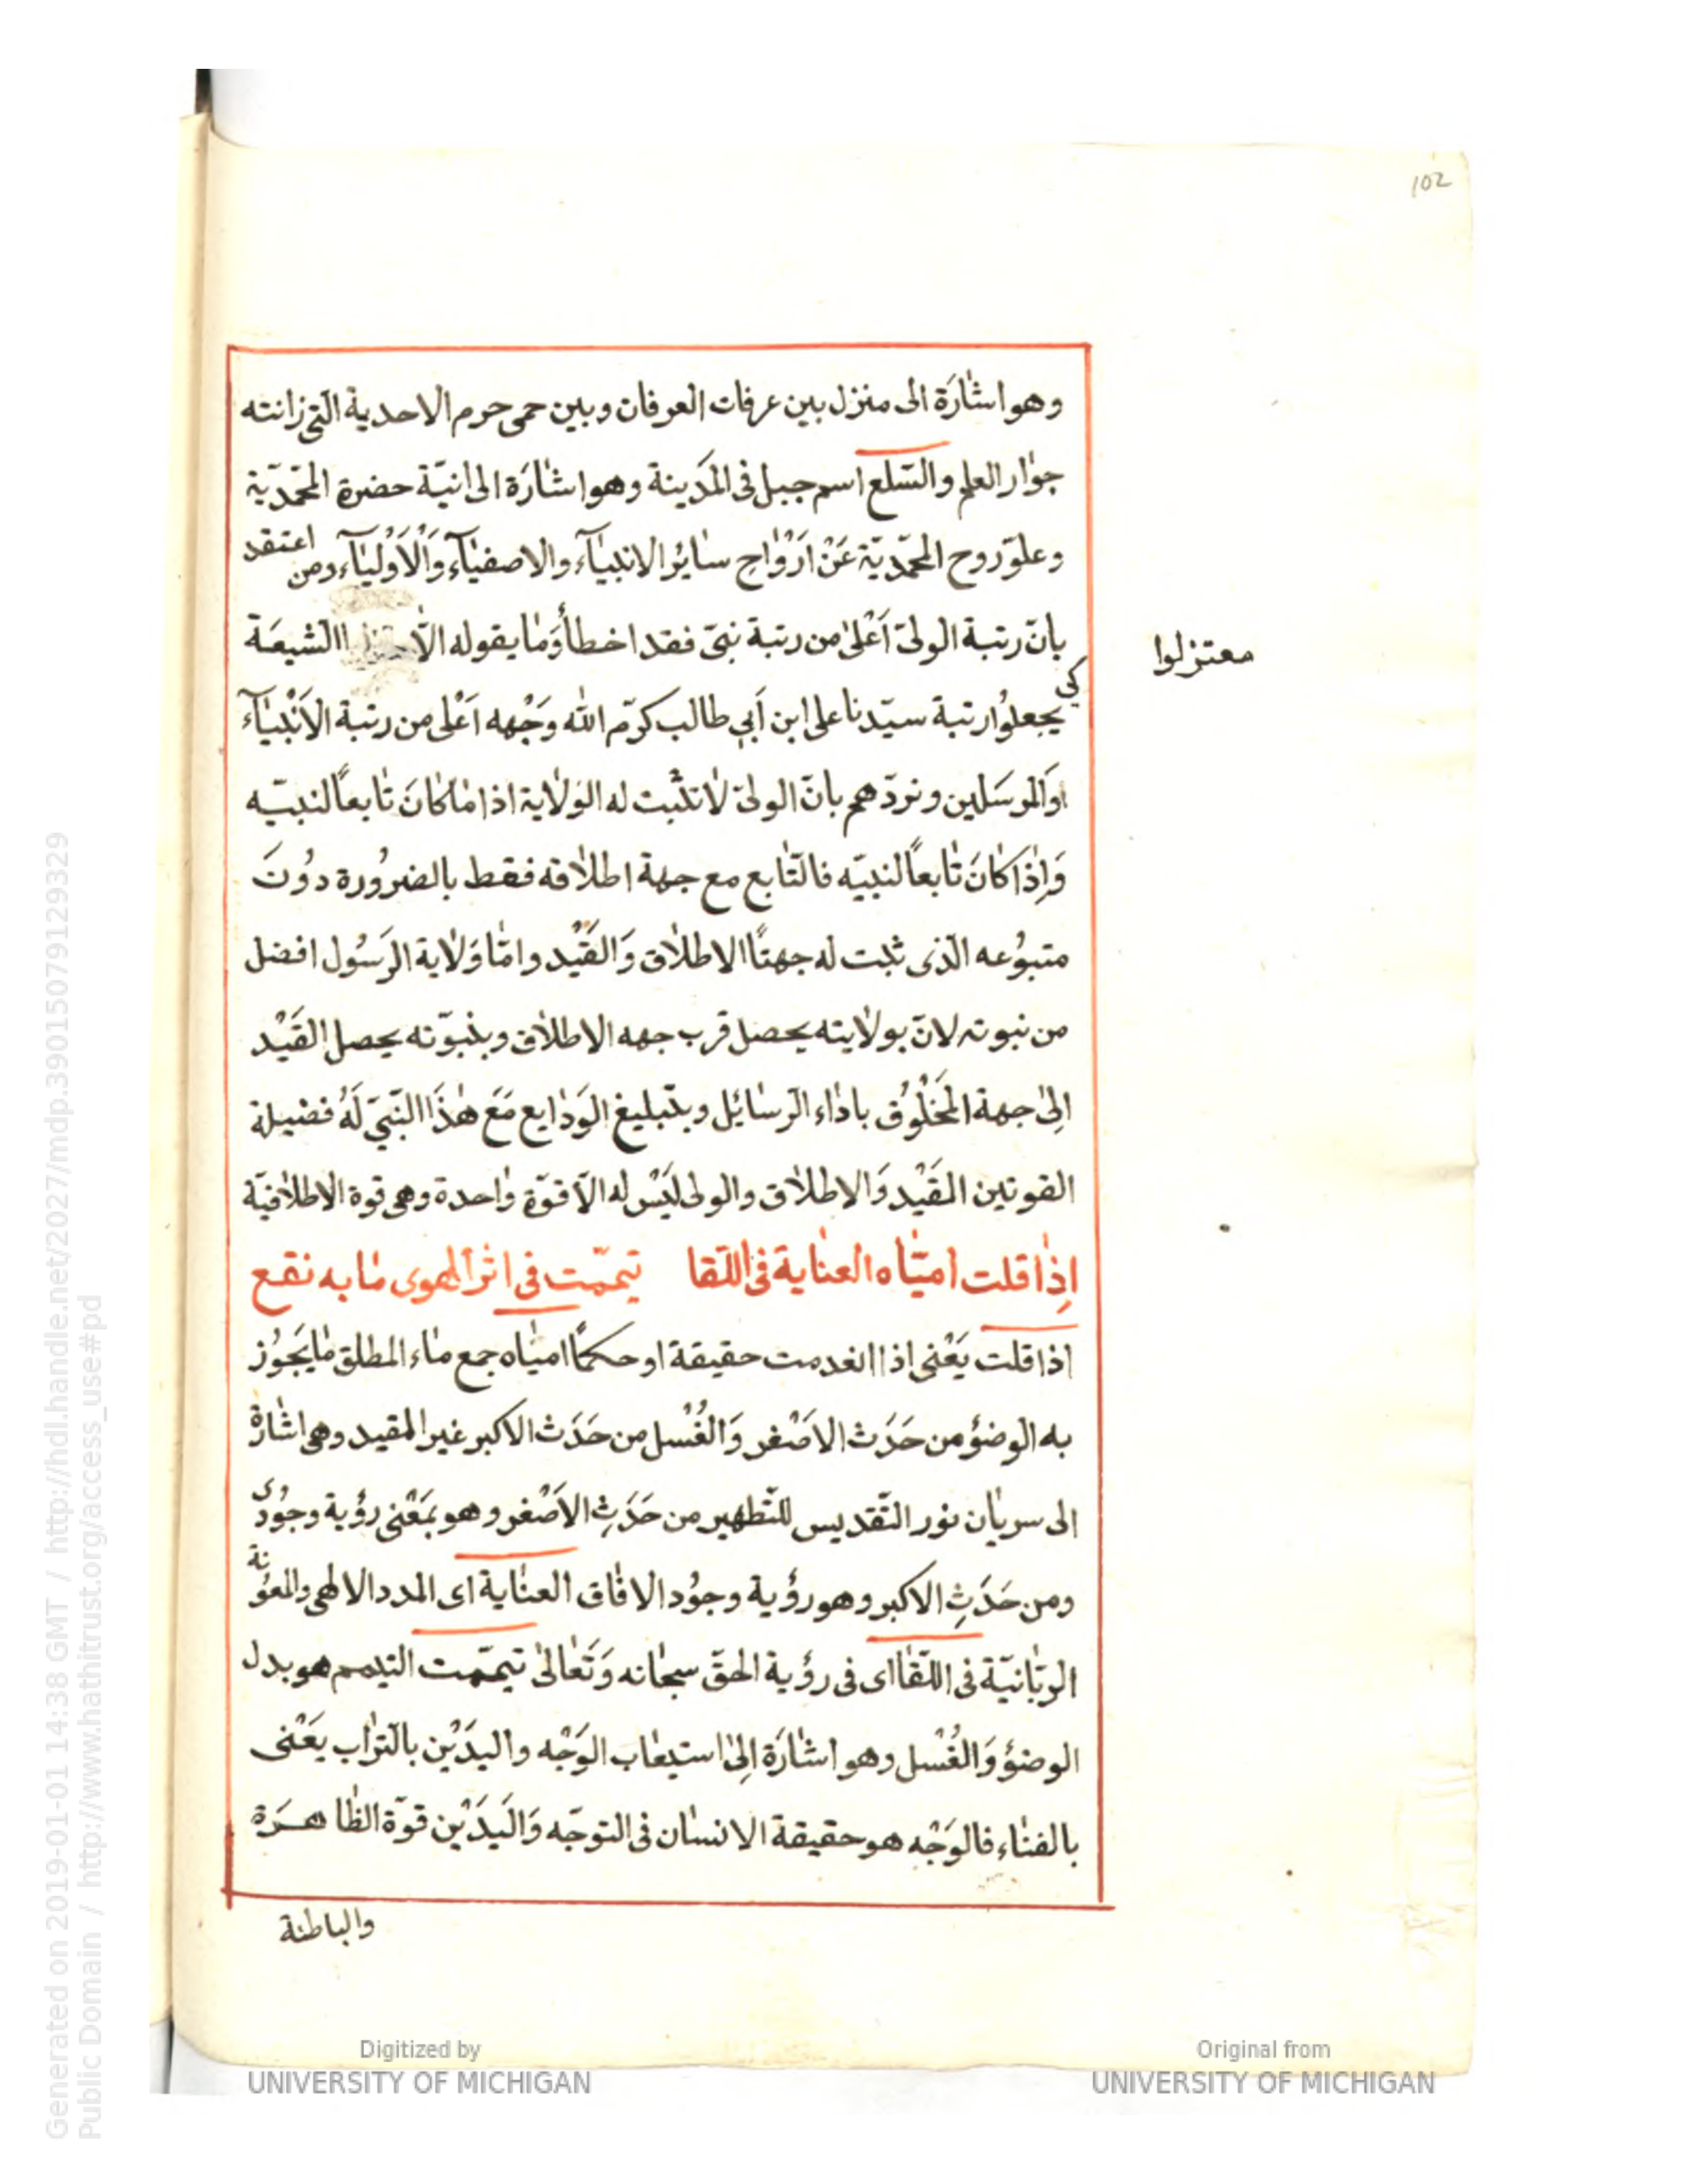 102
وهو اشٰارَة الى منزل بين عرفات العرفان وبين حمى حرم الاحدية الّتى زانته
جوٰار العلم والسّلع اسم جبل فى المَدينة وهو اشٰارَة الى انيّة حضرة المحمّديّة
وعلوّ روح المحمّديّة عَنْ اَرْوٰاحِ سٰاير الانبيَآء والاصفيَآء وَالْاَوْلِيَآء ومن اعتقد
بانّ رتبة الولىّ اَعْلىٰ من رتبة نبىّ فقد اخطأ وَمٰا يقوله الّا الشيعَة
معتزلوا
كى يجعلوُا رتبة سيّدنا على ابن اَبى طالب كرّم الله وَجْهه اَعْلى من رتبة الاَنْبيَآء
اوَالمرسَلين ونردّهم بانّ الولىّ لاٰ تثبت له الوَلاٰية اذا مٰا كٰانَ تٰابعاً لنبيّه
وَاِذٰا كٰانَ تٰابعاً لنبيّه فالتّٰابع مع جهة اطلاٰقه فقط بالضرُورة دوُنَ
متبوُعه الّذى ثبت له جهتَا الاطلاٰق وَالقَيْد وامّٰا وَلاٰية الرَسُول افضل
من نبوته لانّ بولاٰيته يحصل قرب جهه الاطلاٰق وبنبوّته يحصل القَيْد
اِلىٰ جهة المَخْلُوُق باداٰء الرسٰائل وبتبليغ الوَدٰايع مَعَ هٰذَا النّبىّ لَهُ فضيلة
القوتين القَيْد وَالاطلاٰق والولى لَيْس له الّا قوّة وٰاحدة وهى قوة الاطلاٰقيّة
اِذٰا قلت اميٰاه العنٰاية فى اللّقا تيمّمت فى اثر الهوى مٰا به نقع
اذا قلت يَعْنى اذا انعدمت حقيقة او حكمًا اميٰاه جمع مٰاء المطلق مٰا يَجوُز
به الوضؤ من حَدَث الاَصْغر وَالغُسْل من حَدَث الاكبر غير المقيد وهى اشٰارة
الى سريٰان نور التّقديس للتّطهير من حَدَثِ الاَصْغر وهو بمَعْنى رؤية وجوُدى
ومن حَدَثِ الاكبر وهو رؤية وجوُد الافٰاق العنٰاية اى المدد الالهى والمعوُنة
الربّٰانيّة فى اللّقٰا اى فى رؤية الحقّ سبحٰانه وَتَعٰالىٰ تيمّمت التيمم هو بدل
الوضؤ وَالغُسْل وهو اشٰارَة اِلىٰ استيعٰاب الوَجْه واليدَيْن بالترٰاب يَعْنى
بالفنٰاء فالوَجْه هو حقيقة الانسٰان فى التوجّه وَاليَدَيْن قوّة الظّٰاهرَة
والباطنة
Generated on 2019-01-01 14:38 GMT / http://hdl.handle.net/2027/mdp.39015079129329
Public Domain / http://www.hathitrust.org/access_use#pd
Digitized by
UNIVERSITY OF MICHIGAN
Original from
UNIVERSITY OF MICHIGAN